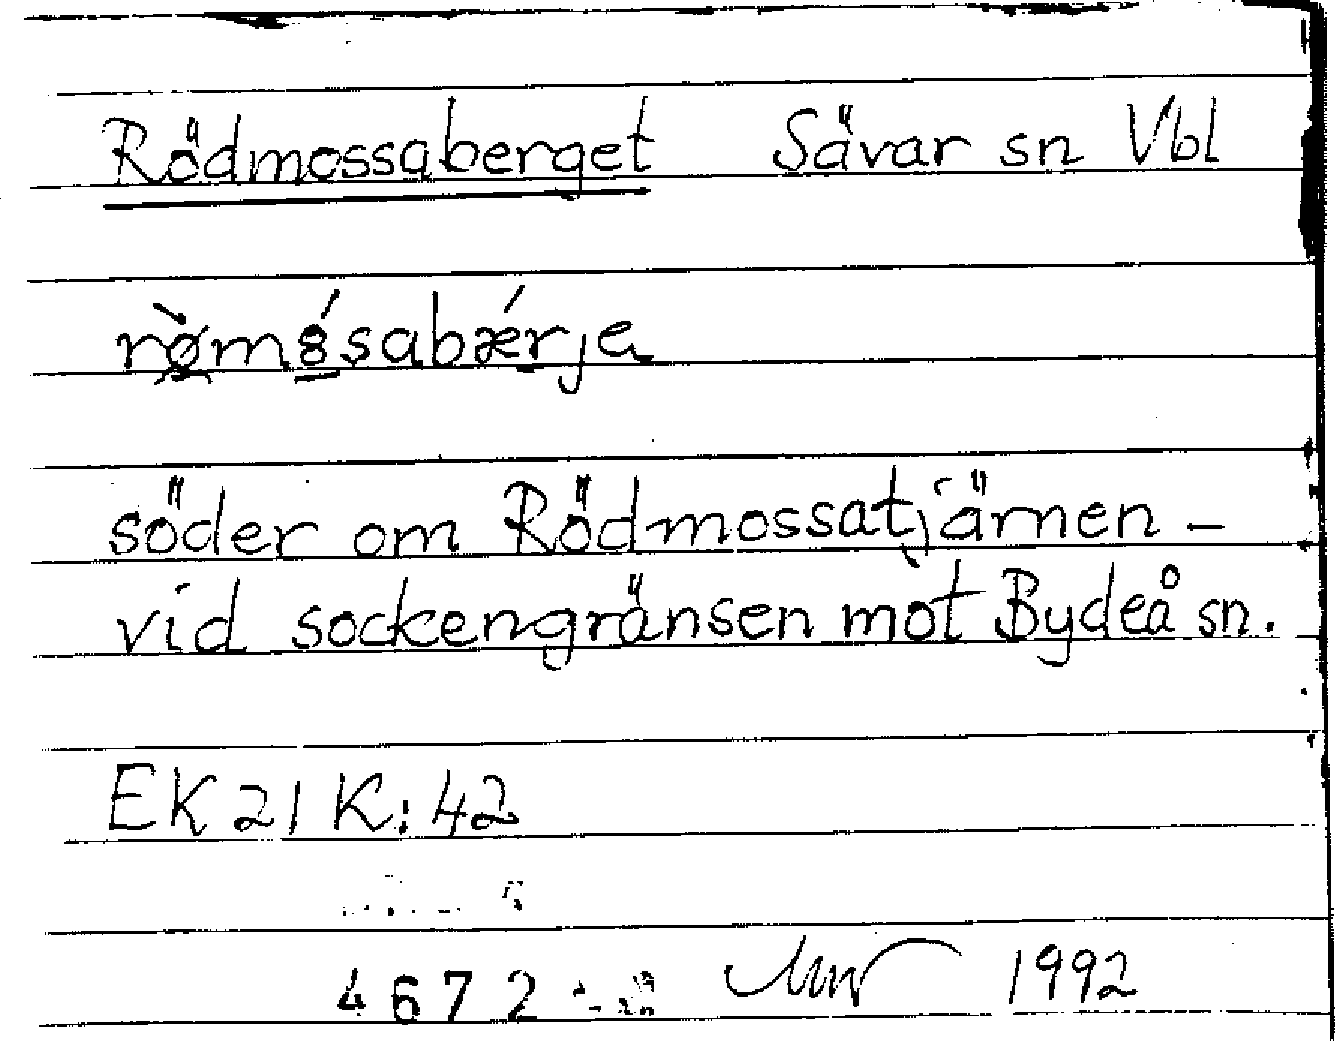 Rödmossaberget Sävar sn Vbl
rø̀m8́sabǽrja
söder om Rödmossatjärnen -
vid sockengränsen mot Bydeå sn.
EK 21 K: 42
4672 1992